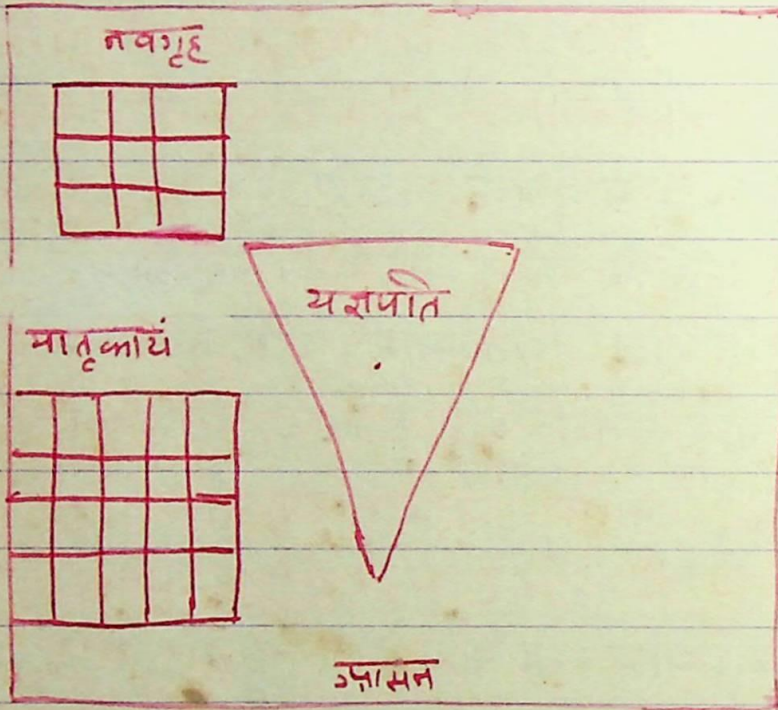 नवगृह
यज्ञपति
मातृकायं
आसन